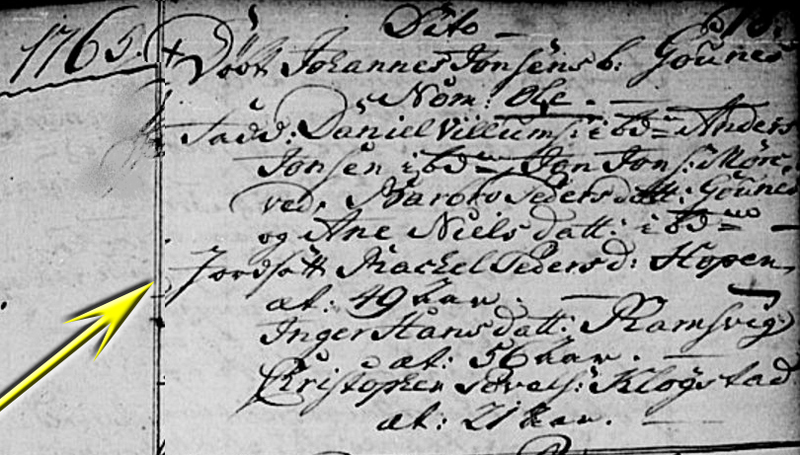 1765.
Dito —
Döbt Johannes Jonsens b: Gounes
Nom: Ole. —
Fadd: Daniel Villums: ibd— Anders
Jonsen ibd— Jon Jons: Möre
ved, Peders datt: Gounes
og Ane Niels datt: ibd— —
Jordfött Rachel Peders d: Hopen,
æt: 49 aar. —
Inger Hans datt: Ramsvig
æt: 56 aar. —
Christopher Klogstad
æt: 21 aar. —